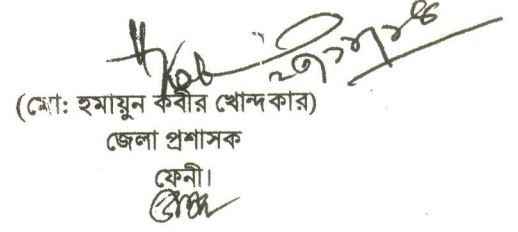 (মো: হুমায়ুন কবীর খোন্দকার)
জেলা প্রশাসক
ফেনী।